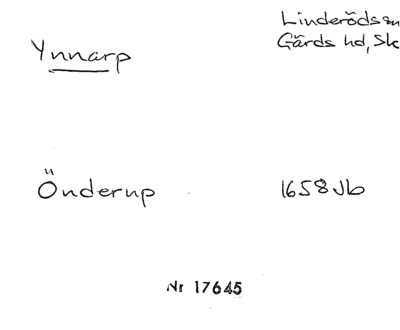 Linderöds sn
Ynnarp
Gärds hd, Sk
Önderup 1658 Jb
Nr 17645